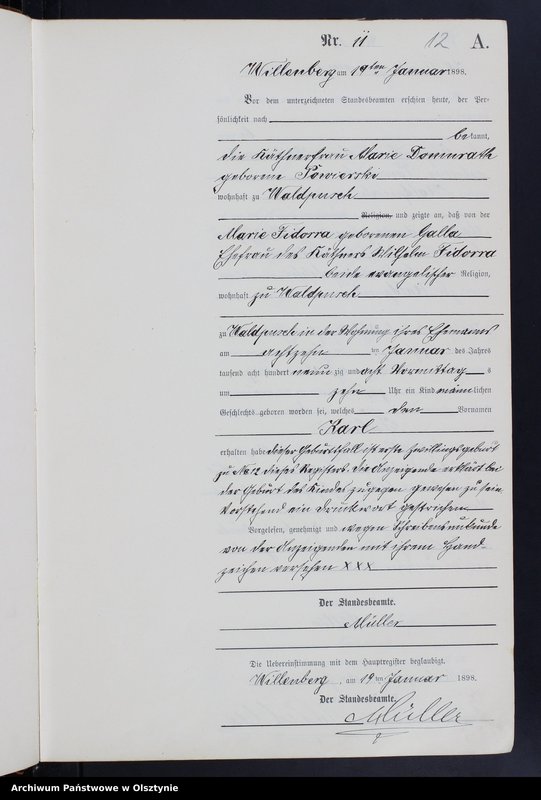 Nr. 11 12 A.
Willenberg am 19ten Januar 1898.
Vor dem unterzeichneten Standesbeamten erschien heute, der Per-
sönlichkeit nach
bekannt,
die Käthnerfrau Marie Domnrath
geborene Powierski
wohnhaft zu Waldpusch
Religion, und zeigte an, daß von der
Marie Fidorra geborenen Galla
Ehefrau des Käthners Wilhelm Fidorra
beide evangelischer Religion,
wohnhaft zu Waldpusch
zu Waldpusch in der Wohnung ihres Ehemanns
am achtzehn ten Januar des Jahres
tausend acht hundert neunzig und acht Vormittags
um zehn Uhr ein Kind männlichen
Geschlechts geboren worden sei, welches den Vornamen
Karl
erhalten habe dieser Geburtsfall ist erste Zwillingsgeburt
zu No 12 dieses Registers. Die Anzeigende erklärt bei
der Geburt des Kindes zugegen gewesen zu sein
Vorstehend ein Druckwort gestrichen
Vorgelesen, genehmigt und wegen Schreibensunkunde
von der Anzeigenden mit ihrem Hand-
zeichen versehen XXX
Der Standesbeamte.
Müller
Die Uebereinstimmung mit dem Hauptregister beglaubigt.
Willenberg, am 19ten Januar 1898.
Der Standesbeamte.
Müller
Archiwum Państwowe w Olsztynie